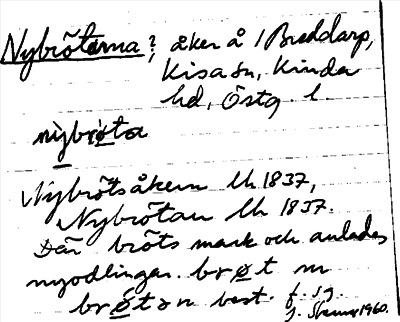 Nybrötarna?, åker å /Breddarp,
Kisa sn, Kinda
hd, Östg. l.
nỳbrǿta
Nybrötsåkern lh 1837,
Nybrötan lh 1837.
Där bröts mark och anlades
nyodlingar. brǿt m
brǿtən best. f. sg.
1960.